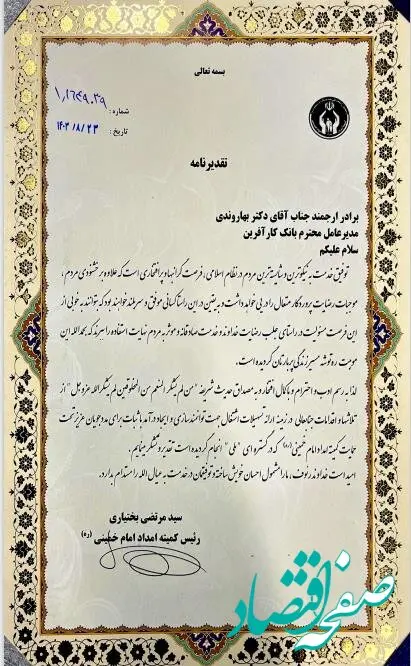 بسمه تعالی
شماره: ۱,۱۶۴۹۰۳۹
تاریخ: ۱۴۰۳/۸/۲۳
تقدیرنامه
برادر ارجمند جناب آقای دکتر بهاروندی
مدیرعامل محترم بانک کارآفرین
سلام علیکم
توفیق خدمت به نیکوترین و شایسته‌ترین مردم در نظام اسلامی، فرصت گرانبها و پرافتخاری است که علاوه بر خشنودی مردم،
موجبات رضایت پروردگار متعال را در پی خواهد داشت و به یقین در این راستا کسانی موفق و سربلند خواهند بود که توانند به خوبی از
این فرصت مسئولیت در راستای جلب رضایت خداوند و خدمت صادقانه و موثر به مردم نهایت استفاده را ببرند که بحمدالله این
موهبت ره توشه مسیر زندگی پربارتان گردیده است.
لذا به رسم ادب و احترام و با کمال افتخار و به مصداق حدیث شریفه "من لم یشکر المنعم من المخلوقین لم یشکر الله عز و جل" از
تلاشها و اقدامات جنابعالی در زمینه ارائه تسهیلات اشتغال جهت توانمندسازی و ایجاد درآمد با ثبات برای مددجویان عزیز تحت
حمایت کمیته امداد امام خمینی (ره) که در گستره ای "ملی" انجام گردیده است تقدیر و تشکر می‌نمایم.
امید است خداوند رئوف، ما را مشمول احسان خویش ساخته و توفیقتان در خدمت به عیال الله را مستدام بدارد.
سید مرتضی بختیاری
رئیس کمیته امداد امام خمینی (ره)
صفحه اقتصاد